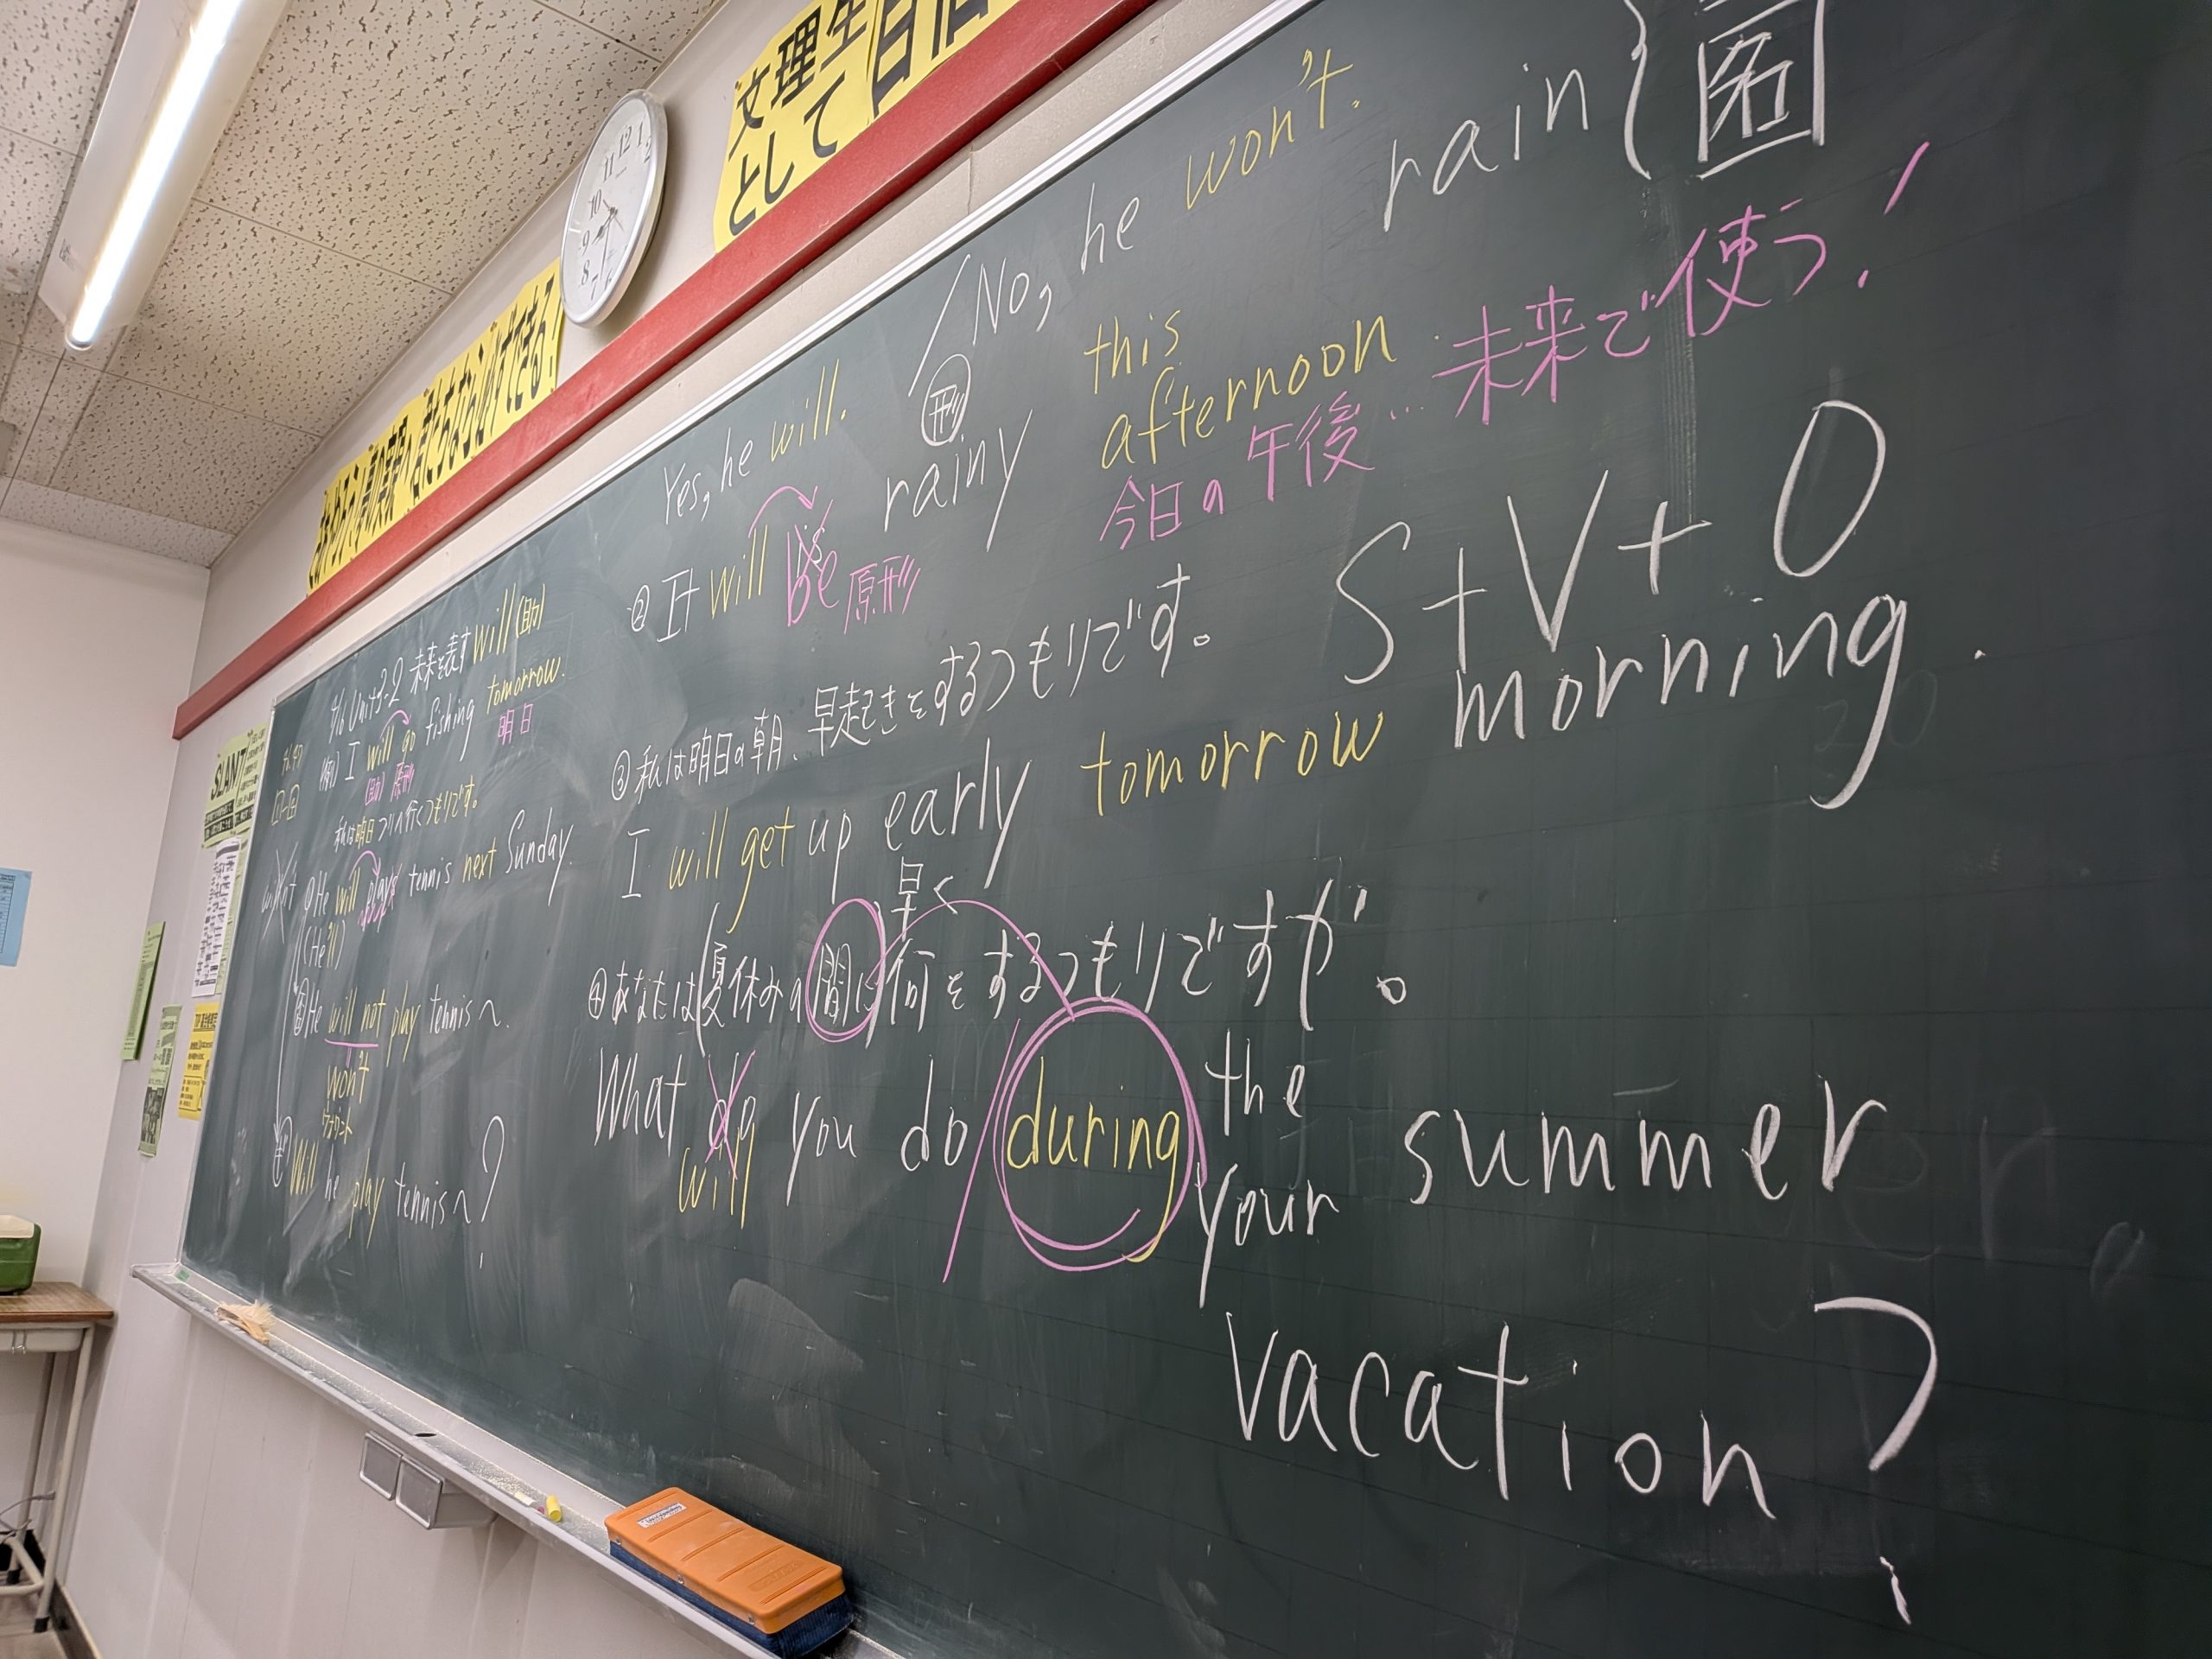 文理生
として
will(助)
Unit3-2 未来を表す
(例) I will go fishing tomorrow.
(助) 原形
明日
私は明日つりへ行くつもりです。
①He will plays tennis next Sunday.
(He'll)
He will not play tennis~.
won't
ウォウント
Will he play tennis~?
Yes, he will. / No, he won't.
② It will be rainy this afternoon.
is
原形
形
rain
名
今日の午後…未来で使う!
③私は明日の朝、早起きをするつもりです。
S+V+O
I will get up early tomorrow morning.
早く
④あなたは(夏休みの間に)何をするつもりですか。
What do you do / during the summer
will
your
vacation?
SLANT
12
1
11
10
9
8
7
6